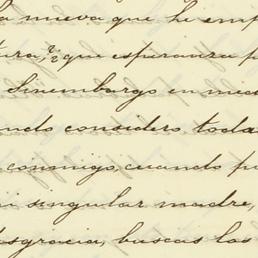 a nueva que he emp
tura, y que esperanza p
Sinembargo en med
ando considero toda
conmigo, cuando pu
mi singular madre,
desgracia, buscas los